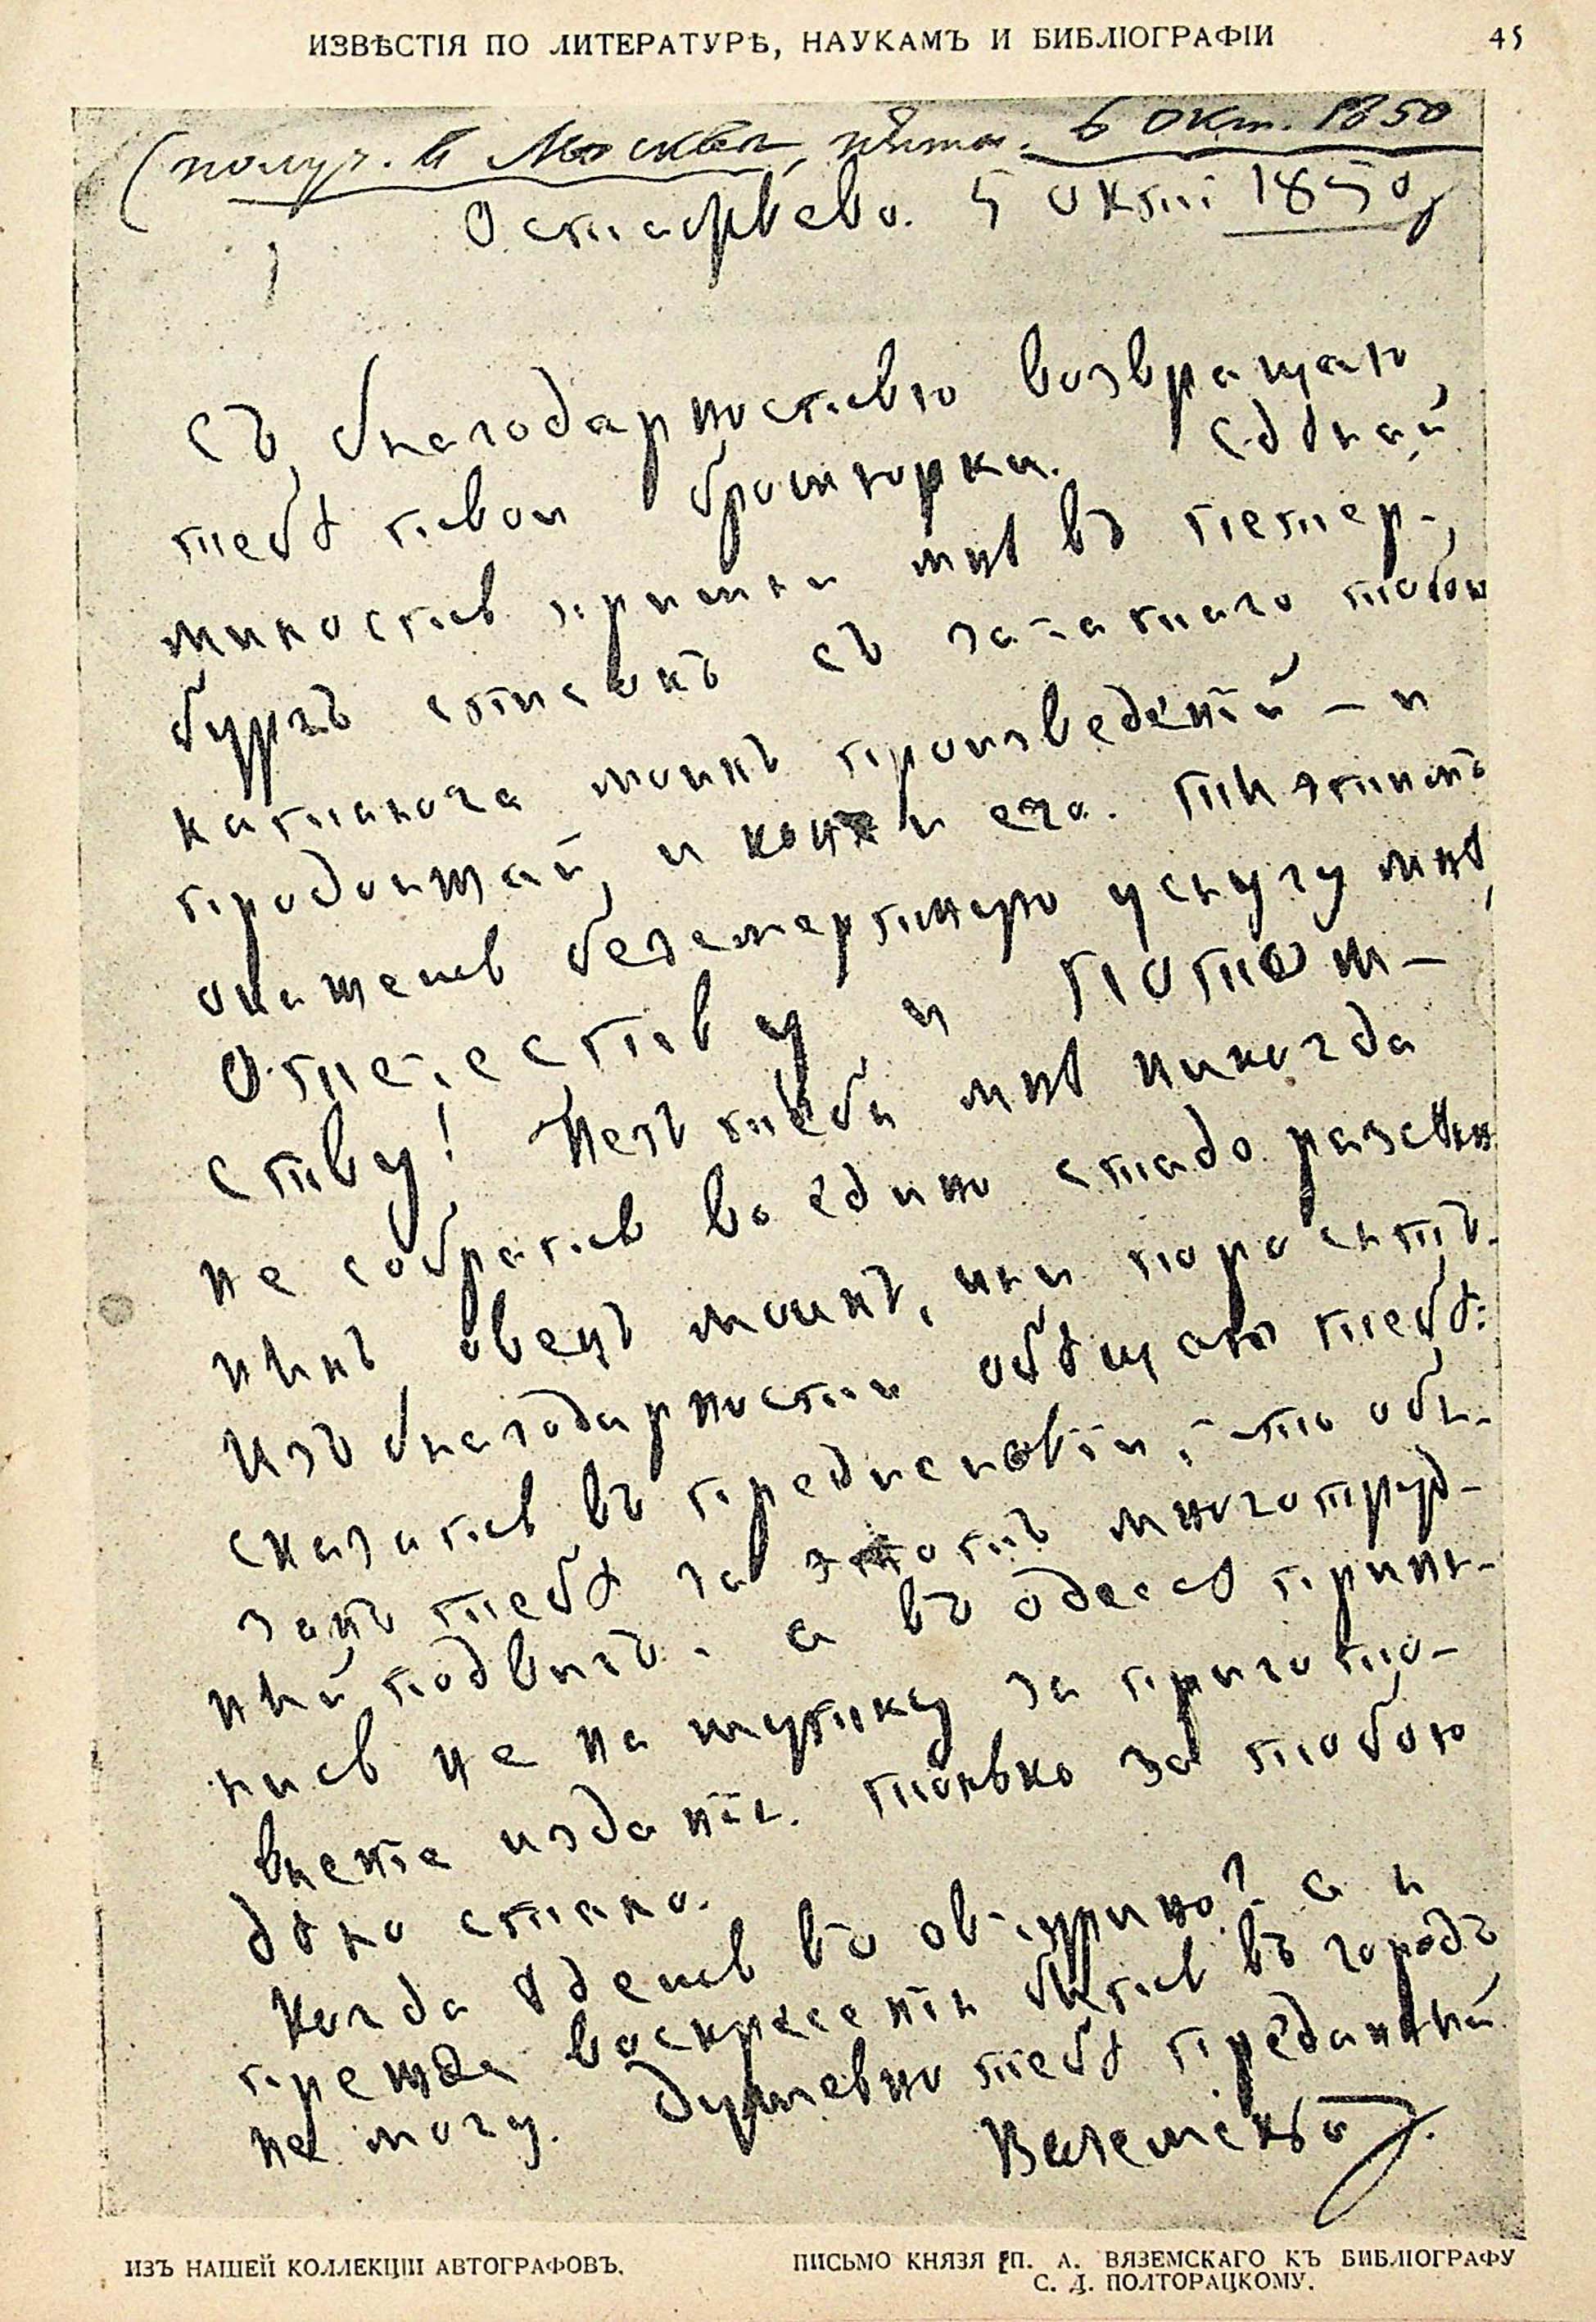 ИЗВѢСТІЯ ПО ЛИТЕРАТУРѢ, НАУКАМЪ И БИБЛІОГРАФІИ 45
(получ. въ Москвѣ, пятн. 6 Окт. 1850
Остафьево. 5 Окт. 1850
Съ благодарностью возвращаю
тебѣ твои брошюрки. Сдѣлай
милость пришли мнѣ въ Петер-
бургъ списокъ съ начатаго тобою
каталога моихъ произведеній — и
продолжай, и кончи его. Ты этимъ
окажешь безсмертную услугу мнѣ,
Отечеству и потом-
ству! Безъ тебя мнѣ никогда
не собрать во едино стадо разсѣян
ныхъ овецъ моихъ, или поросятъ.
Изъ благодарности обѣщаю тебѣ:
сказать въ предисловіи, что обя-
занъ тебѣ за этотъ многотруд-
ный подвигъ. а въ Одессѣ приня-
лись не на шутку за пригото-
вленіе изданія. только за тобою
дѣло стало.
Когда ѣдешь въ Овчурино? а я
прежде воскресенія быть въ городѣ
не могу. Душевно тебѣ преданный
Вяземской.
ИЗЪ НАШЕЙ КОЛЛЕКЦІИ АВТОГРАФОВЪ.
ПИСЬМО КНЯЗЯ П. А. ВЯЗЕМСКАГО КЪ БИБЛІОГРАФУ
С. Д. ПОЛТОРАЦКОМУ.